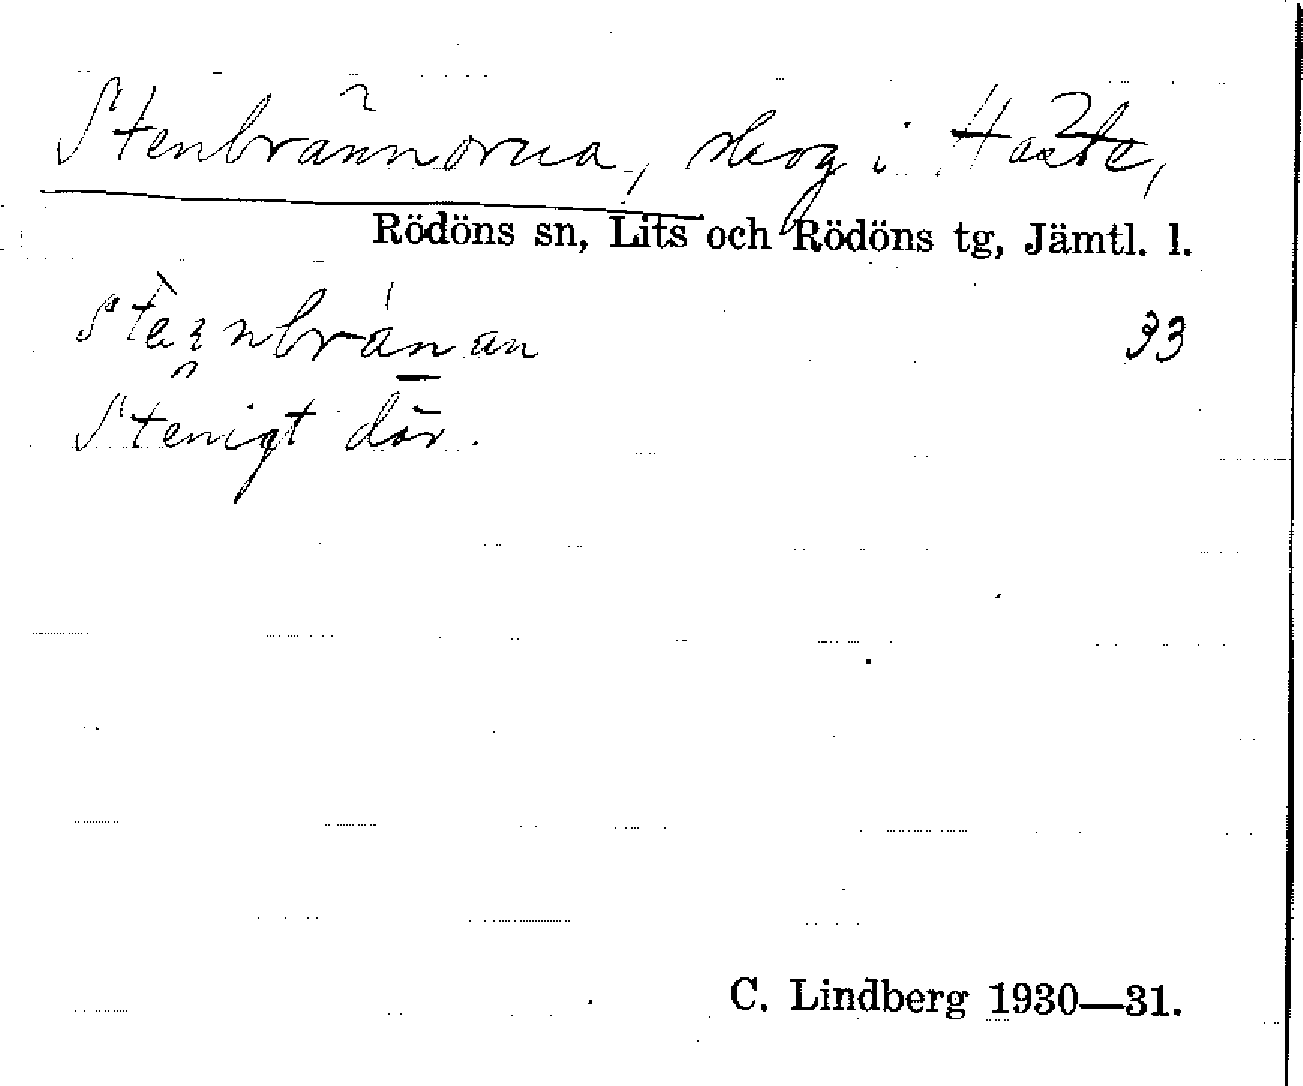 Stenbrännorna, skog i
Rödöns sn, Lits och Rödöns tg, Jämtl. l.
33
Stenigt där.
C. Lindberg 1930—31.